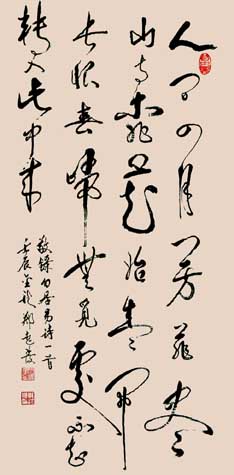 人间四月芳菲尽
山寺桃花始盛开
长恨春归無觅處不知
转入此中来
敬録白居易诗一首
壬辰金秋郑